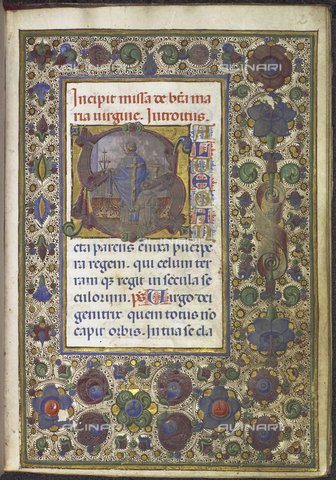 Incipit missa de bt̄a ma
ria uirgine. Introitus.
SALUE SAN
cta parens enixa puerpe
ra regem. qui celum ter
ram qꝫ regit in secula se
culorum. ps Uirgo dei
genitrix quem totus nō
capit orbis. In tua se cla
ALINARI
ALINARI
ALINARI
ALINARI